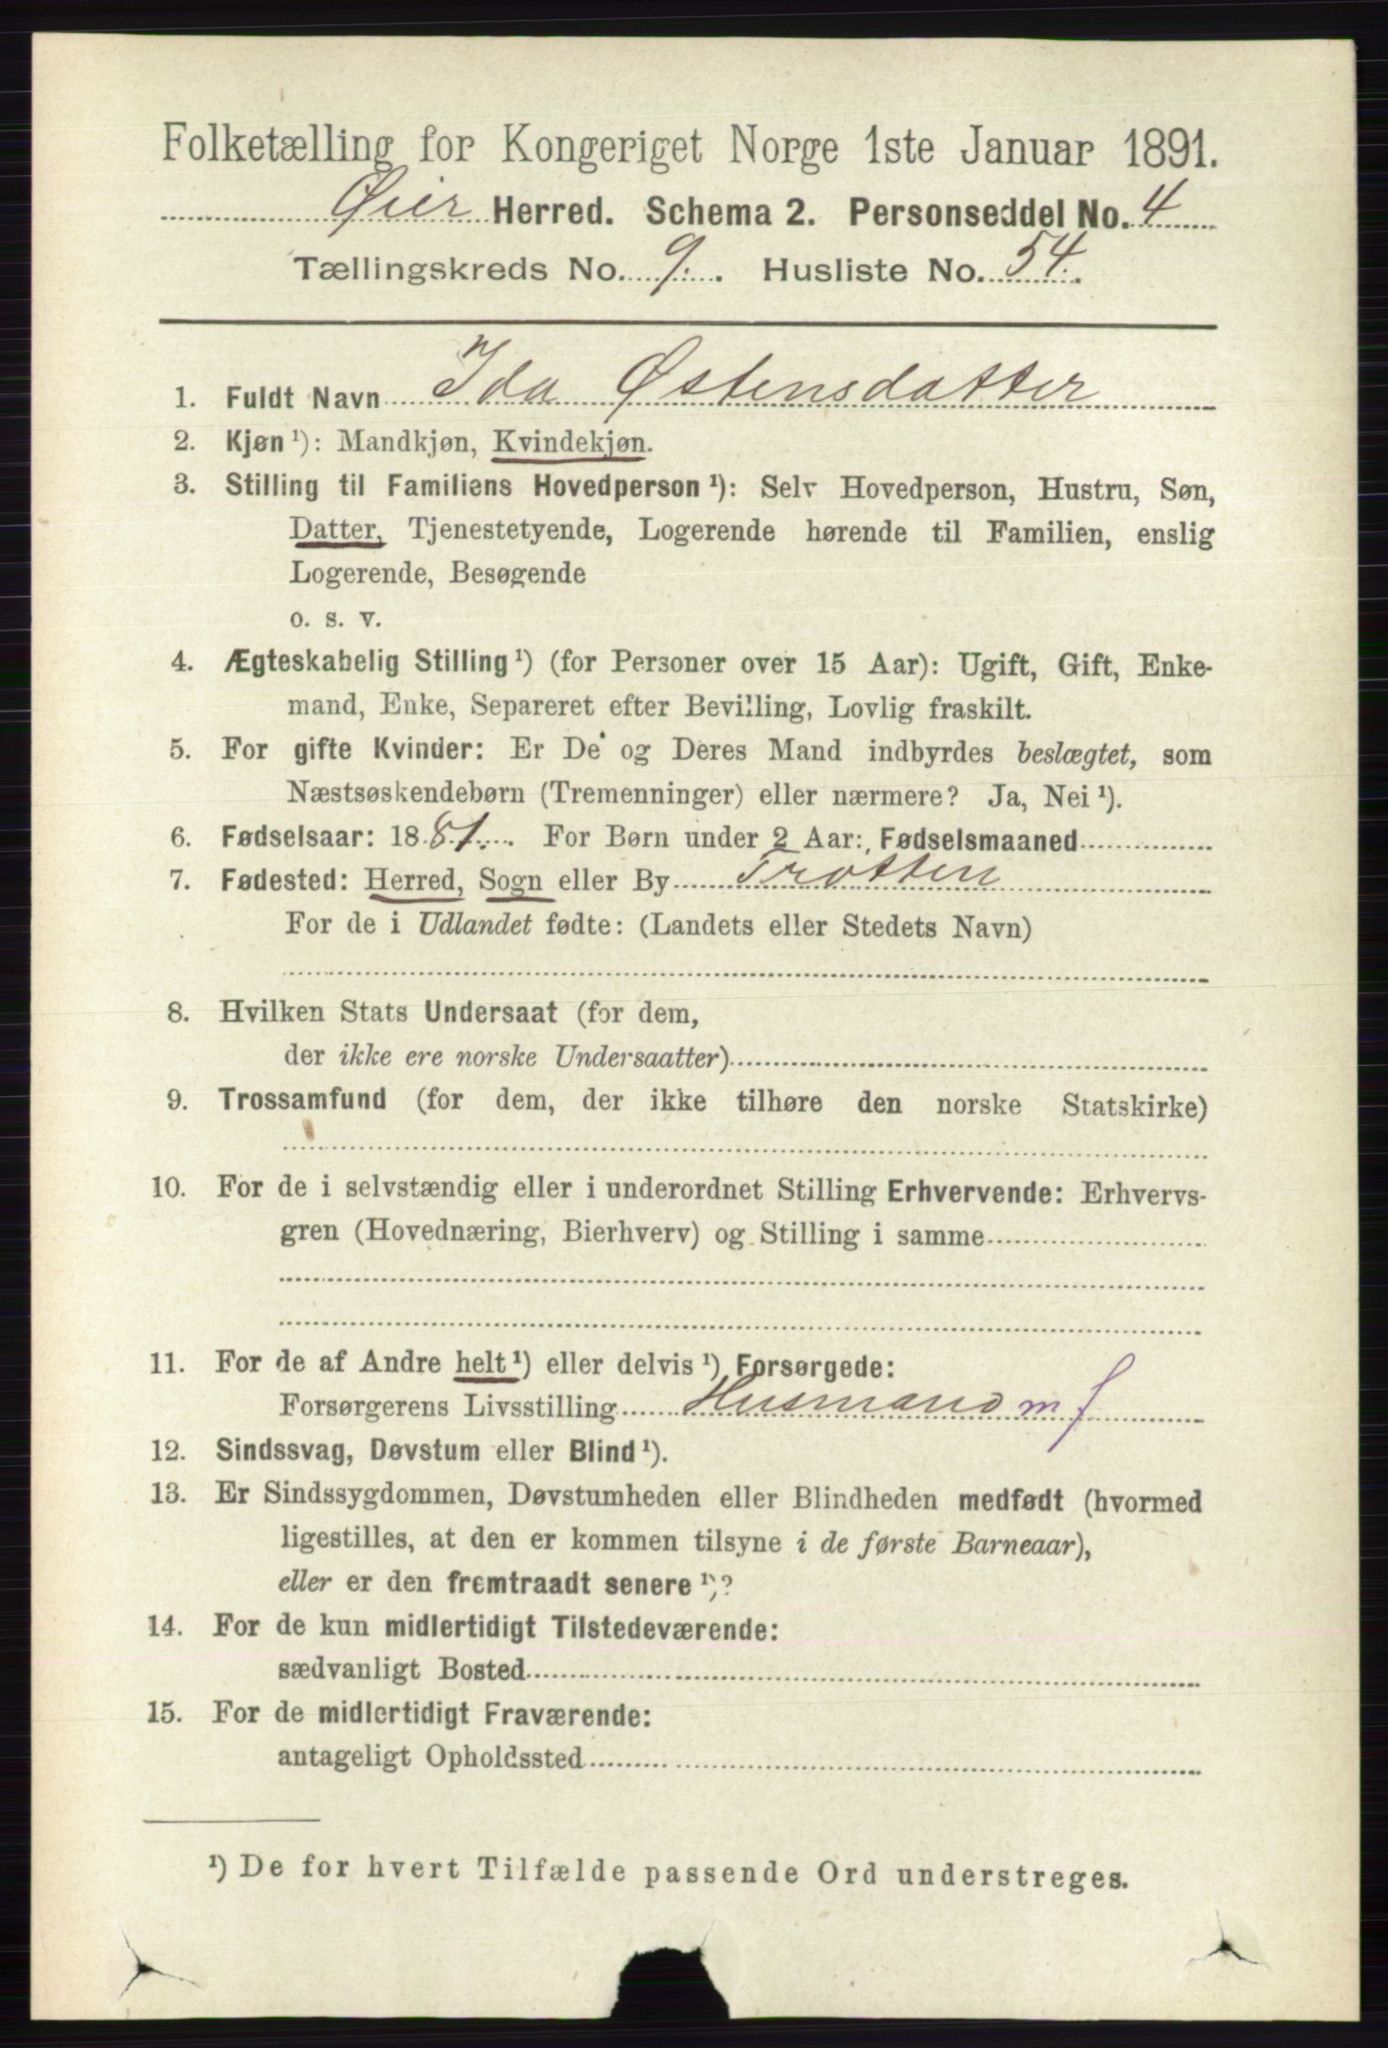 Folketælling for Kongeriget Norge 1ste Januar 1891.
Øier Herred. Schema 2. Personseddel No. 4
Tællingskreds No. 9. Husliste No. 54.
1. Fuldt Navn Ida Østensdatter
2. Kjøn ¹): Mandkjøn, Kvindekjøn.
3. Stilling til Familiens Hovedperson ¹): Selv Hovedperson, Hustru, Søn,
Datter, Tjenestetyende, Logerende hørende til Familien, enslig
Logerende, Besøgende
o. s. v.
4. Ægteskabelig Stilling ¹) (for Personer over 15 Aar): Ugift, Gift, Enke-
mand, Enke, Separeret efter Bevilling, Lovlig fraskilt.
5. For gifte Kvinder: Er De og Deres Mand indbyrdes beslægtet, som
Næstsøskendebørn (Tremenninger) eller nærmere? Ja, Nei ¹).
6. Fødselsaar: 1881. For Børn under 2 Aar: Fødselsmaaned
7. Fødested: Herred, Sogn eller By Trotten
For de i Udlandet fødte: (Landets eller Stedets Navn)
8. Hvilken Stats Undersaat (for dem,
der ikke ere norske Undersaatter)
9. Trossamfund (for dem, der ikke tilhøre den norske Statskirke)
10. For de i selvstændig eller i underordnet Stilling Erhvervende: Erhvervs-
gren (Hovednæring, Bierhverv) og Stilling i samme
11. For de af Andre helt ¹) eller delvis ¹) Forsørgede:
Forsørgerens Livsstilling Husmand m f
12. Sindssvag, Døvstum eller Blind ¹).
13. Er Sindssygdommen, Døvstumheden eller Blindheden medfødt (hvormed
ligestilles, at den er kommen tilsyne i de første Barneaar),
eller er den fremtraadt senere ¹)?
14. For de kun midlertidigt Tilstedeværende:
sædvanligt Bosted
15. For de midlertidigt Fraværende:
antageligt Opholdssted
¹) De for hvert Tilfælde passende Ord understreges.